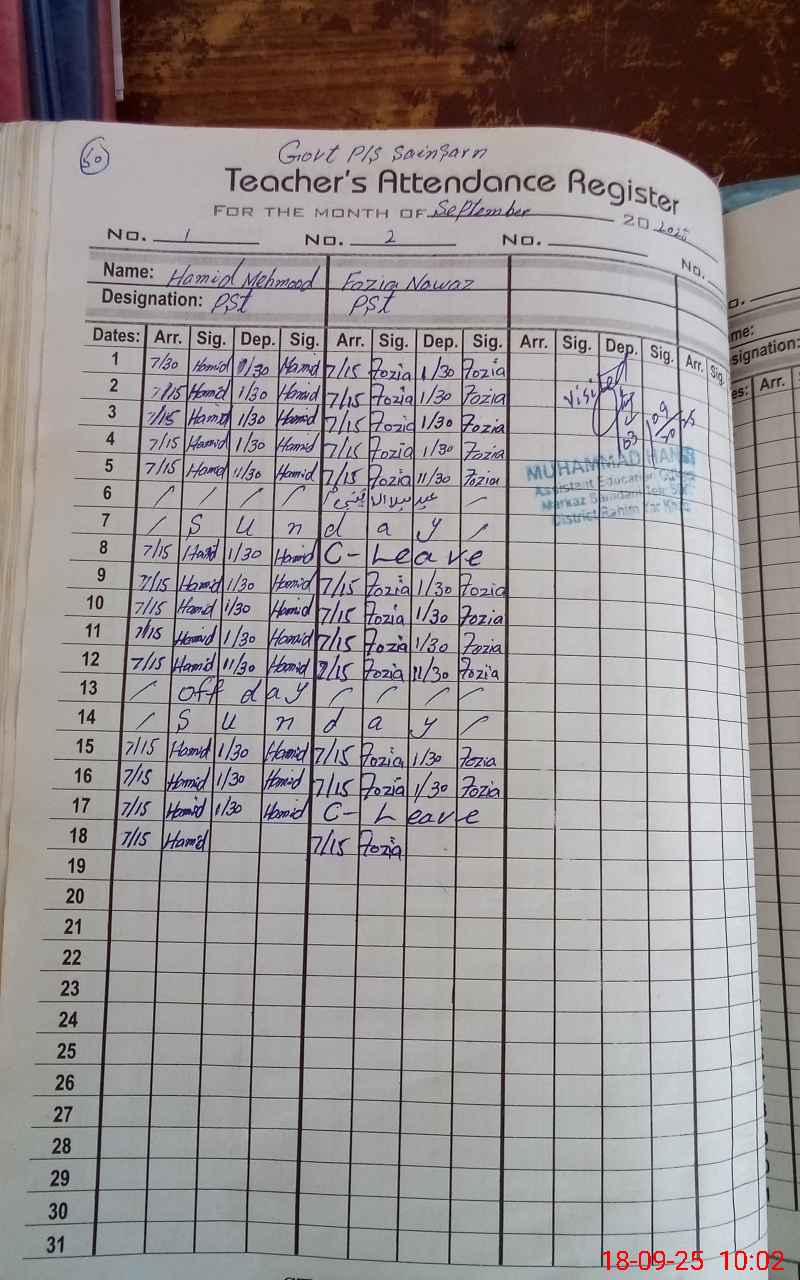 50
Govt P/S Sainsarn
Teacher's Attendance Register
FOR THE MONTH OF September 20 2025
No. 1 No. 2 No. No.
Name: Hamid Mehmood Fozia Nawaz
Designation: PST PST
Dates: Arr. Sig. Dep. Sig. Arr. Sig. Dep. Sig. Arr. Sig. Dep. Sig. Arr. Sig.
1 7/30 Hamid 1/30 Hamid 7/15 Fozia 1/30 Fozia
2 7/15 Hamid 1/30 Hamid 7/15 Fozia 1/30 Fozia visited
3 7/15 Hamid 1/30 Hamid 7/15 Fozia 1/30 Fozia
4 7/15 Hamid 1/30 Hamid 7/15 Fozia 1/30 Fozia
5 7/15 Hamid 11/30 Hamid 7/15 Fozia 11/30 Fozia
MUHAMMAD HANIF
Assistant Education Officer
Markaz
District Rahim Yar Khan
6 / / / / عید میلاد النبی /
7 / S u n d a y /
8 7/15 Hamid 1/30 Hamid C- Leave
9 7/15 Hamid 1/30 Hamid 7/15 Fozia 1/30 Fozia
10 7/15 Hamid 1/30 Hamid 7/15 Fozia 1/30 Fozia
11 7/15 Hamid 1/30 Hamid 7/15 Fozia 1/30 Fozia
12 7/15 Hamid 11/30 Hamid 7/15 Fozia 11/30 Fozia
13 / off day / / / /
14 / S u n d a y /
15 7/15 Hamid 1/30 Hamid 7/15 Fozia 1/30 Fozia
16 7/15 Hamid 1/30 Hamid 7/15 Fozia 1/30 Fozia
17 7/15 Hamid 1/30 Hamid C- Leave
18 7/15 Hamid 7/15 Fozia
19
20
21
22
23
24
25
26
27
28
29
30
31
18-09-25 10:02